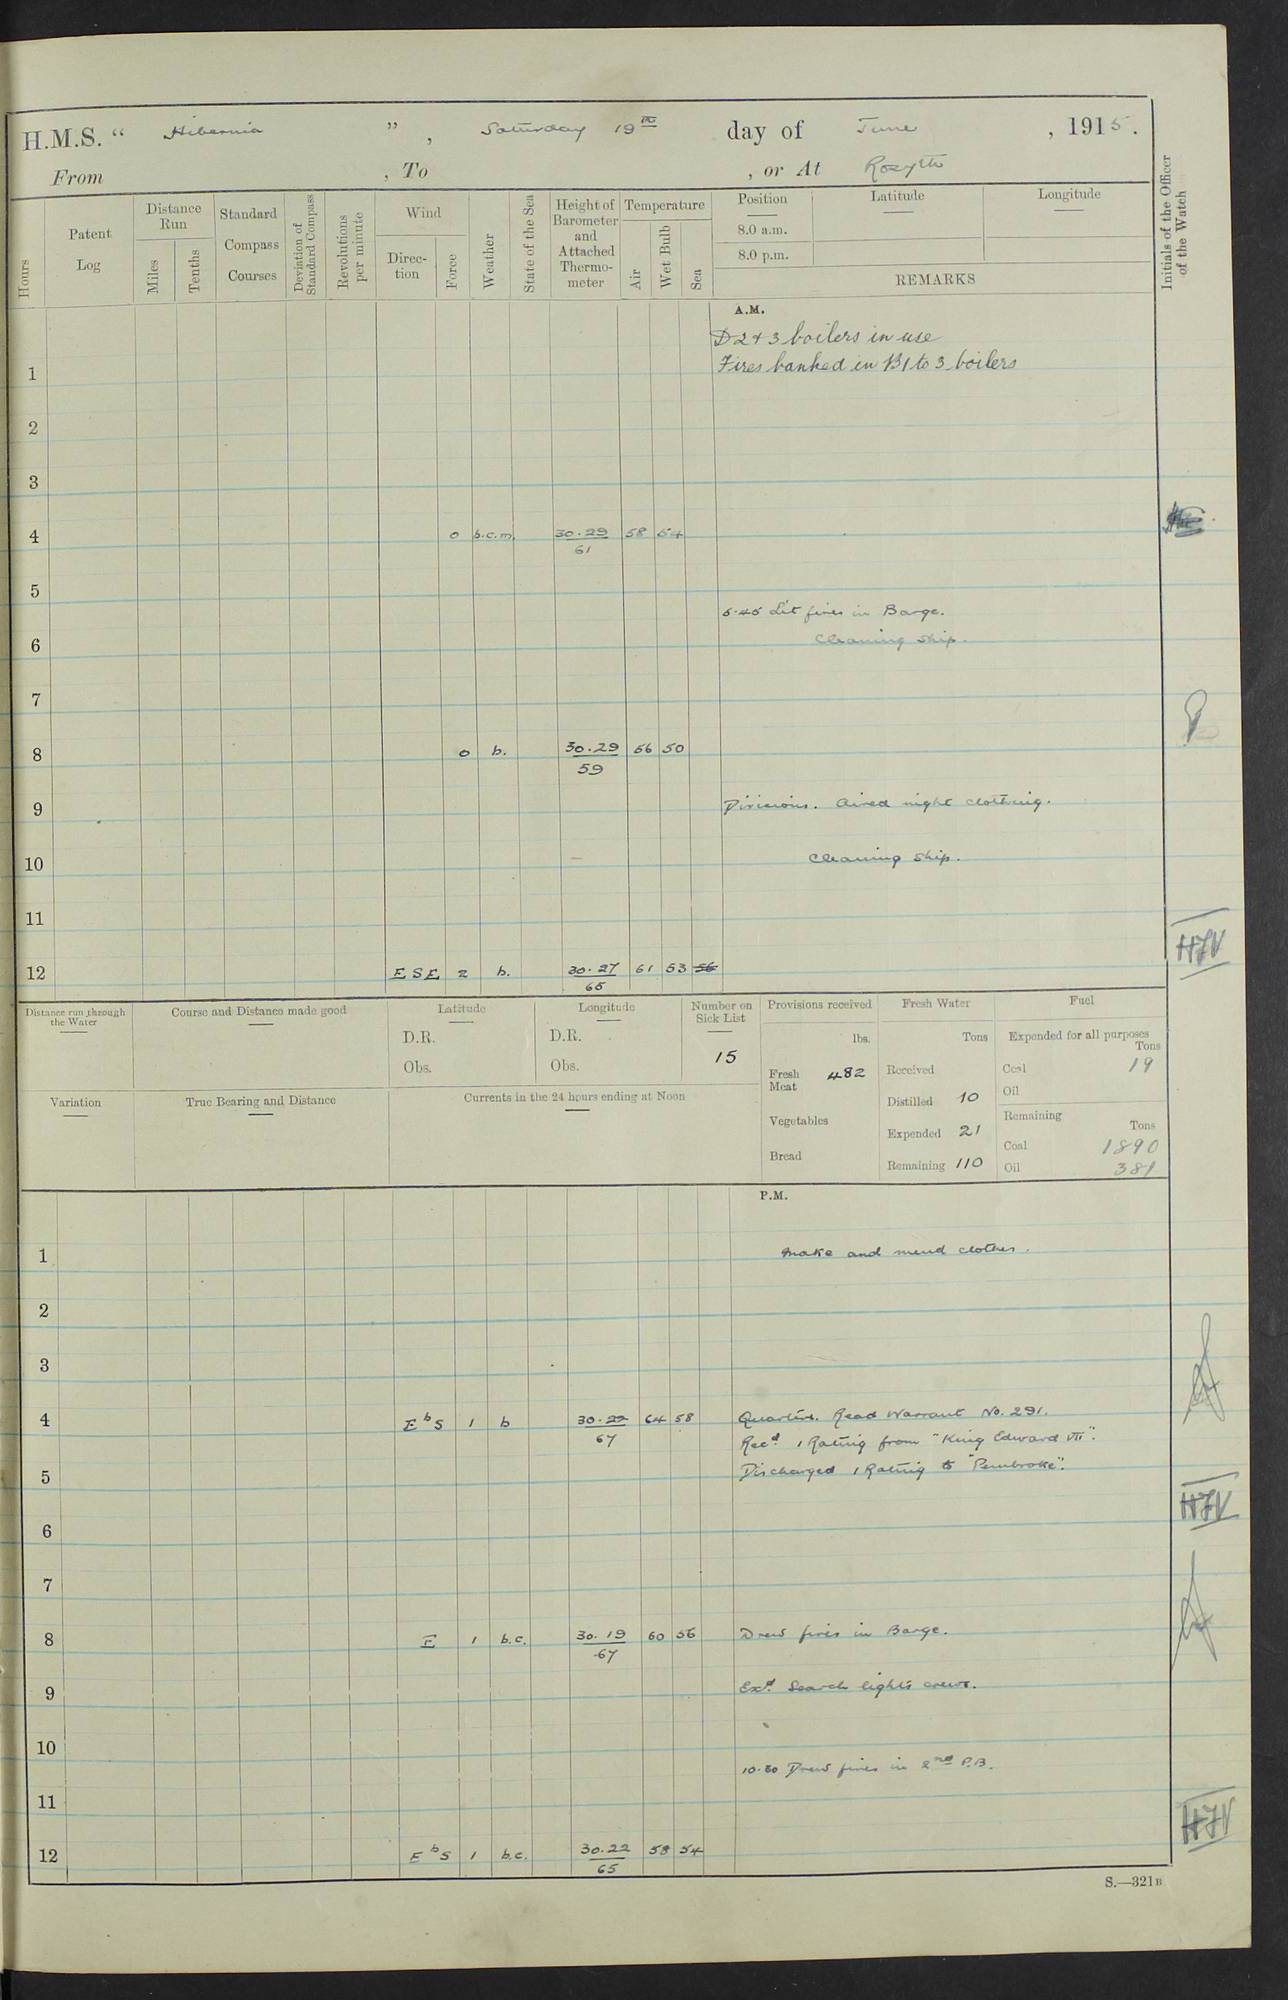 H.M.S. “ Hibernia ” , Saturday 19th day of June , 1915.
From , To , or At Rosyth
Hours
Patent Log
Distance Run
Miles
Tenths
Standard Compass Courses
Deviation of Standard Compass
Revolutions per minute
Wind
Direction
Force
Weather
State of the Sea
Height of Barometer and Attached Thermometer
Temperature
Air
Wet Bulb
Sea
Position
8.0 a.m.
8.0 p.m.
Latitude
Longitude
REMARKS
Initials of the Officer of the Watch
A.M.
D 2 & 3 boilers in use
1 Fires banked in B1 to 3 boilers
2
3
4 0 b.c.m. 30.29 58 54
61
5
5.45 Lit fires in Barge.
6 Cleaning Ship.
7
8 0 b. 30.29 56 50
59
9 Divisions. Aired night clothing.
10 Cleaning Ship.
11
HJV
12 ESE 2 b. 30.27 61 53 56
65
Distance run through the Water
Course and Distance made good
Latitude
D.R.
Obs.
Longitude
D.R.
Obs.
Number on Sick List
15
Provisions received
lbs.
Fresh Meat 482
Vegetables
Bread
Fresh Water
Tons
Received
Distilled 10
Expended 21
Remaining 110
Fuel
Expended for all purposes
Tons
Coal 19
Oil
Remaining
Tons
Coal 1890
Oil 381
Variation
True Bearing and Distance
Currents in the 24 hours ending at Noon
P.M.
1 Make and mend clothes.
2
3
4 E b S 1 b 30.22 64 58 Quarters. Read Warrant No. 291.
67 Recd. 1 Rating from "King Edward VII".
5 Discharged 1 Rating to "Pembroke".
HJV
6
7
8 E 1 b.c. 30.19 60 56 Drew fires in Barge.
67
9 Exd. Search lights crews.
10
10.30 Drew fires in 2nd P.B.
11
HJV
12 E b S 1 b.c. 30.22 58 54
65
S.—321B